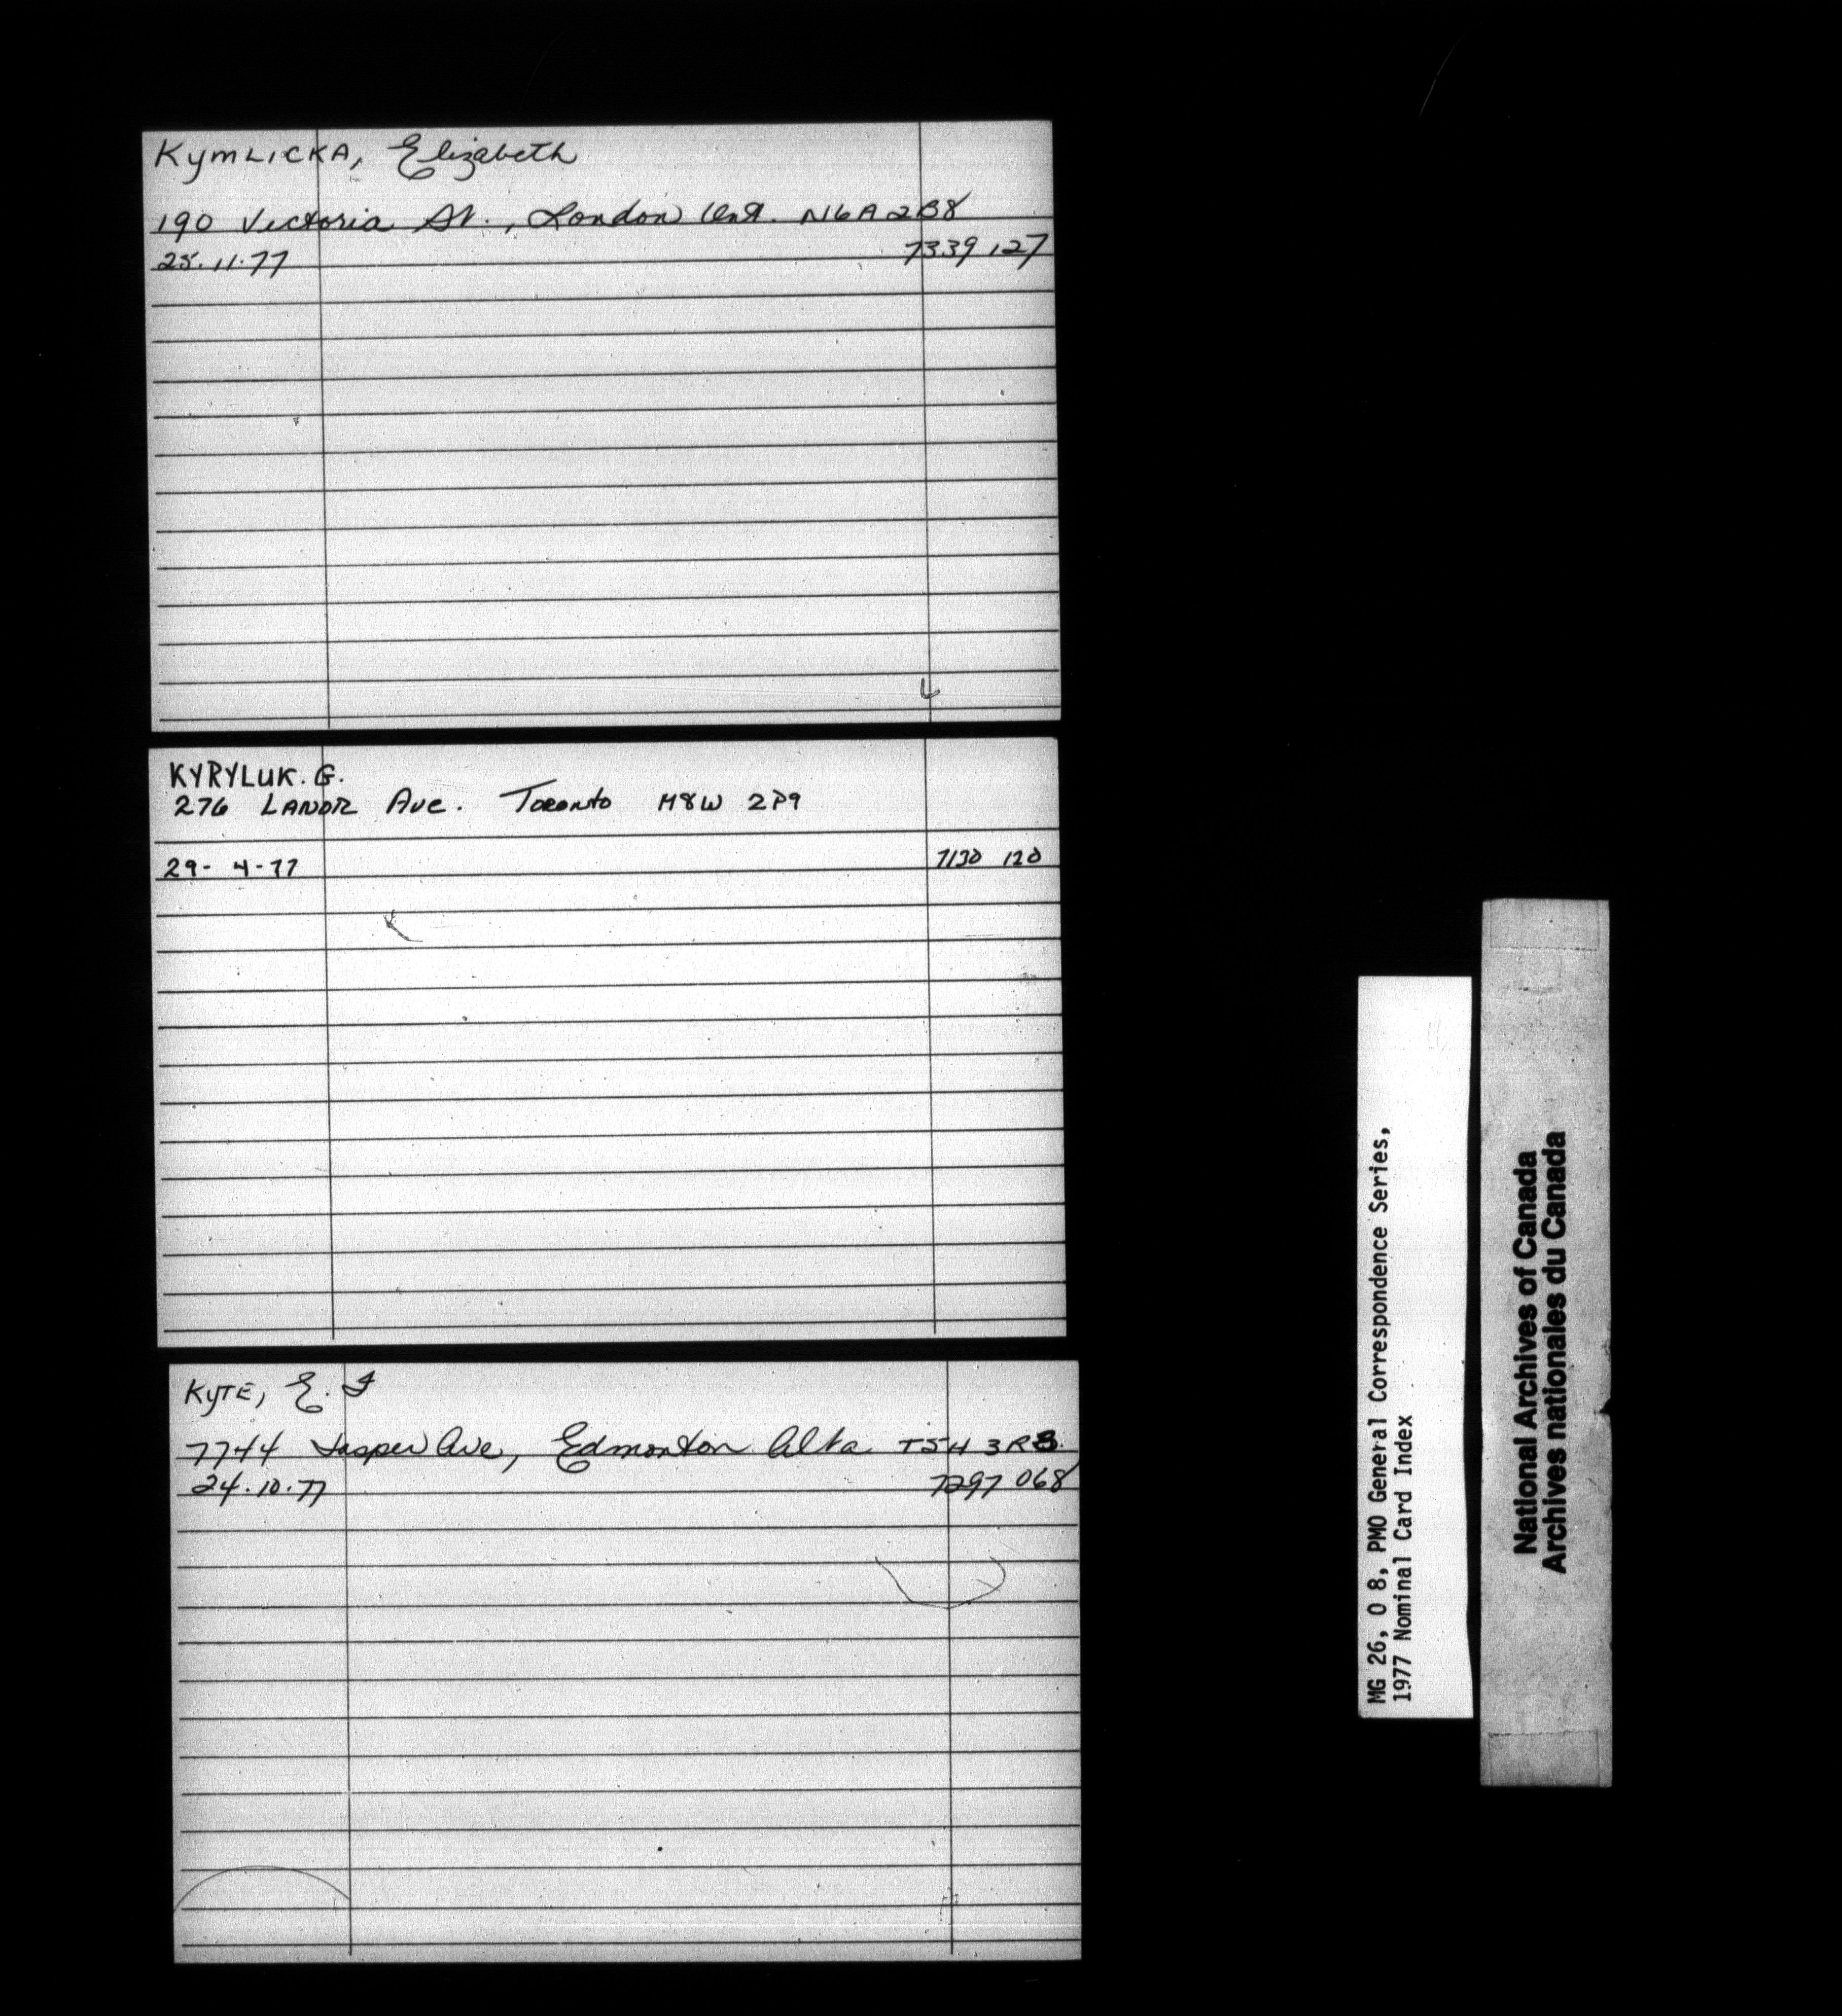 KYMLICKA, Elizabeth
190 Victoria St., London Ont. N6A 2B8
25.11.77 7339 127
KYRYLUK. G.
276 LANOR Ave. Toronto M8W 2P9
29-4-77 7130 120
KYTE, E. J
7744 Jasper Ave, Edmonton Alta T5H 3R8.
24.10.77 7297 068
MG 26, O 8, PMO General Correspondence Series,
1977 Nominal Card Index
National Archives of Canada
Archives nationales du Canada